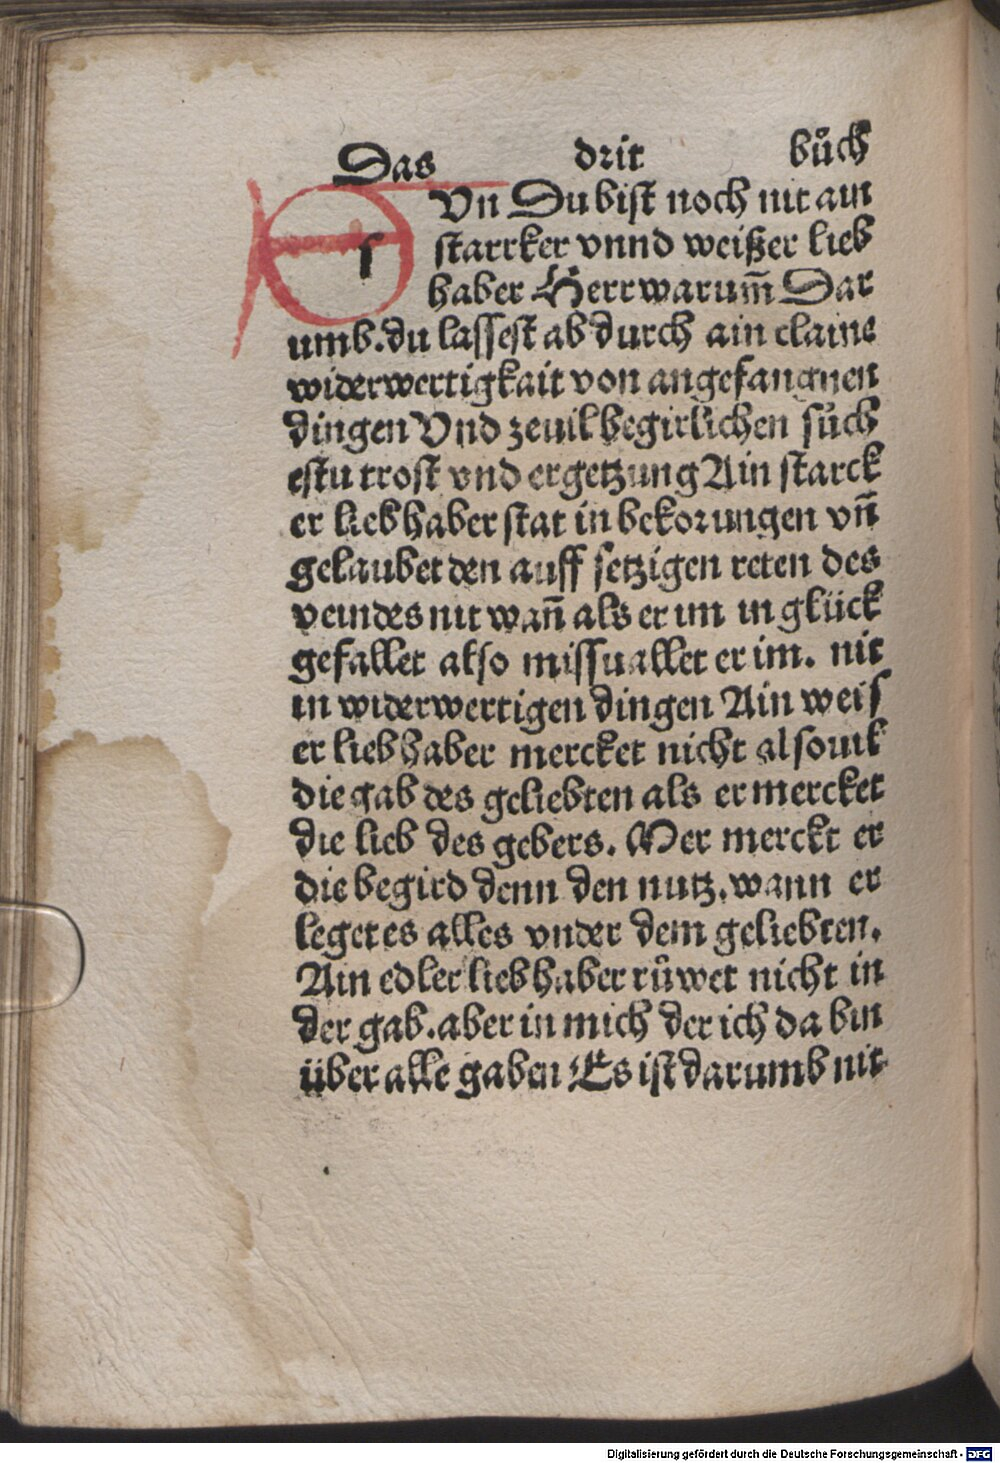 Das drit bůch
Vn Du bist noch nit ain
s starrker vnnd weißer lieb
haber Herr warum̃ Dar
umb. du lassest ab durch ain claine
widerwertigkait von angefangnen
dingen Vnd zeuil begirlichen sůch
estu trost vnd ergetzung Ain starck
er liebhaber stat in bekorungen vñ
gelaubet den auff setzigen reten des
veindes nit wañ als er im in glück
gefallet also missuallet er im. nit
in widerwertigen dingen Ain weis
er liebhaber mercket nicht alsouil
die gab des geliebten als er mercket
die lieb des gebers. Mer merckt er
die begird denn den nutz. wann er
leget es alles vnder dem geliebten.
Ain edler liebhaber růwet nicht in
der gab. aber in mich der ich da bin
über alle gaben Es ist darumb nit
Digitalisierung gefördert durch die Deutsche Forschungsgemeinschaft - DFG